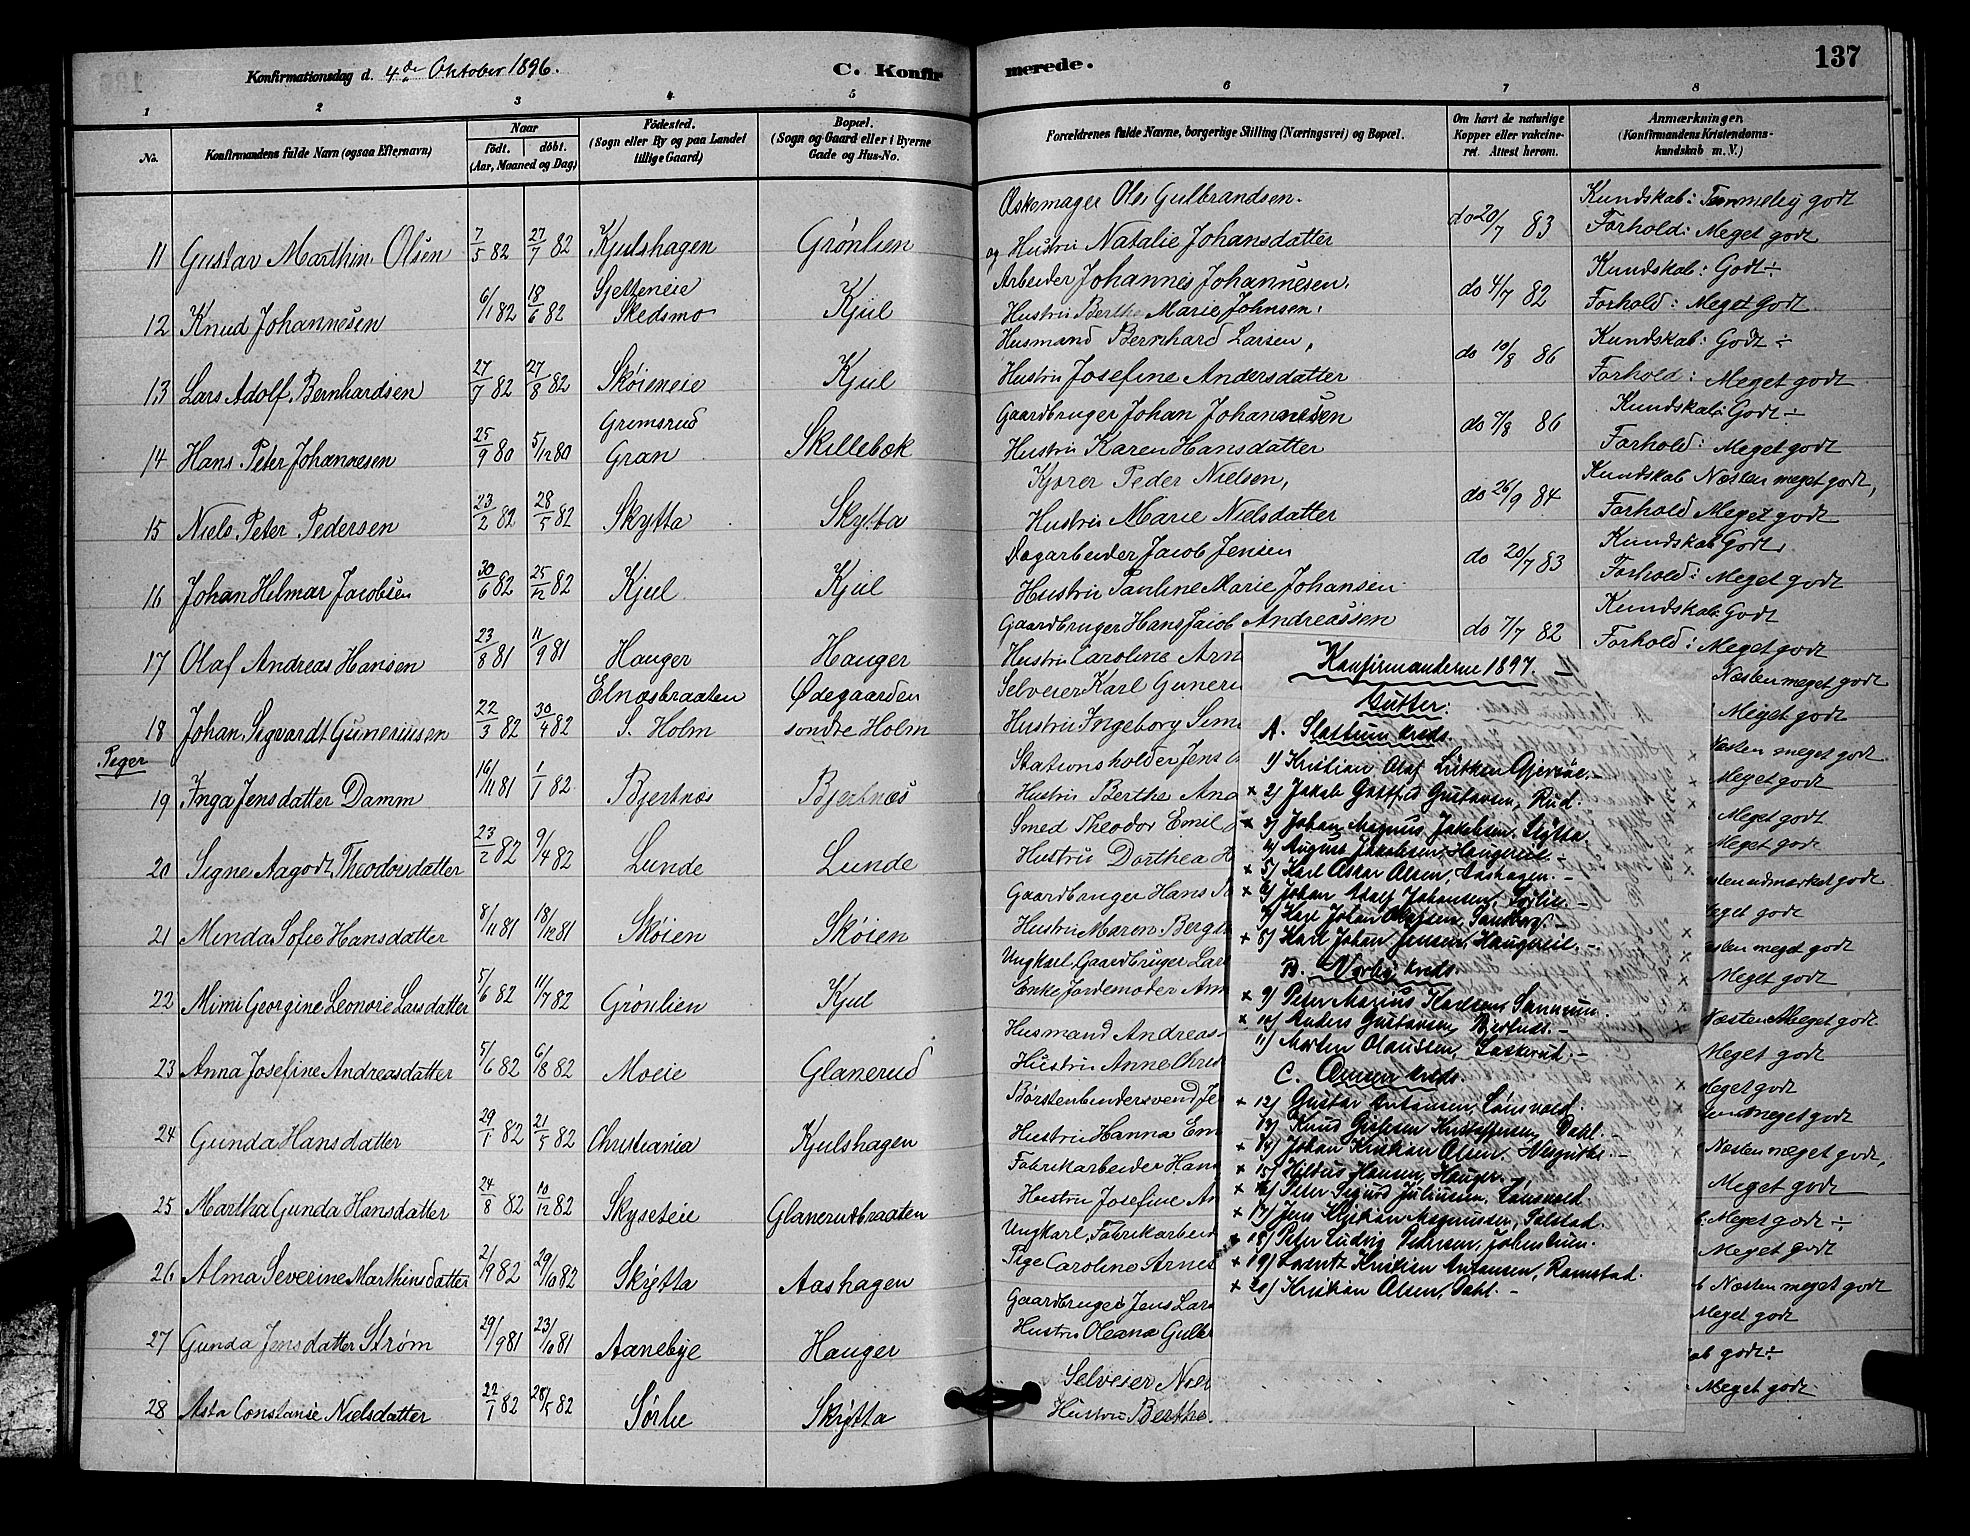 Konfirmationsdag d. 4de Oktober 1896.
C. Konfirmerede.
137
1 2 3 4 5 6 7 8
No. Konfirmandens fulde Navn (ogsaa Efternavn) Naar født. døbt. (Aar, Maaned og Dag) Fødested. (Sogn eller By og paa Landet tillige Gaard) Bopæl. (Sogn og Gaard eller i Byerne Gade og Hus-No.
Forældrenes fulde Navne, borgerlige Stilling (Næringsvei) og Bopæl. Om havt de naturlige Kopper eller vakcineret. Attest herom. Anmærkninger (Konfirmandens Kristendomskundskab m. V.)
11 Gustav Marthin Olsen 7/5 82 27/7 82 Kjulshagen Grønlien
12 Knud Johannesen 6/1 82 18/6 82 Sjetteneie Skedsmo Kjul
13 Lars Adolf Bernhardsen 27/7 82 27/8 82 Skøieneie Kjul
14 Hans Peter Johannesen 25/9 80 5/12 80 Gremsrud Gran Skillebæk
15 Niels Peter Pedersen 23/2 82 28/5 82 Skytta Skytta
16 Johan Helmar Jacobsen 30/6 82 25/12 82 Kjul Kjul
17 Olaf Andreas Hansen 23/8 81 11/9 81 Hauger Hauger
18 Johan Sigvardt Guneriussen 22/3 82 30/4 82 Elnæsbraaten S. Holm Ødegaarden søndre Holm
Piger
19 Inga Jensdatter Damm 16/11 81 1/1 82 Bjertnæs Bjertnæs
20 Signe Aagodt Theodorsdatter 23/2 82 9/4 82 Lunde Lunde
21 Minda Sofie Hansdatter 8/11 81 18/12 81 Skøien Skøien
22 Mimi Georgine Leonore Larsdatter 5/6 82 11/7 82 Grønlien Kjul
23 Anna Josefine Andreasdatter 5/6 82 6/8 82 Moeie Glanerud
24 Gunda Hansdatter 29/1 82 21/5 82 Christiania Kjulshagen
25 Martha Gunda Hansdatter 24/8 82 10/12 82 Skyseteie Glanerudbraaten
26 Alma Severine Marthinsdatter 21/9 82 29/10 82 Skytta Aashagen
27 Gunda Jensdatter Strøm 29/9 81 23/10 81 Aanebye Hauger
28 Asta Constanse Nielsdatter 22/1 82 28/5 82 Sørlie Skytta
Ole Gulbrandsen. Kundskab: Temmelig godt
og Hustru Natalie Johansdatter do 20/7 83 Forhold: Meget godt
Arbeider Johannes Johannesen, Kundskab: Godt ÷
Hustru Berthe Marie Johnsen, do 4/7 82 Forhold: Meget godt
Husmand Bernhard Larsen, Kundskab: Godt ÷
Hustru Josefine Andersdatter do 10/8 86 Forhold: Meget godt
Gaardbruger Johan Johannesen Kundskab: Godt ÷
Hustru Karen Hansdatter do 7/8 86 Forhold: Meget godt
Kjører Peder Nielsen, Kundskab Næsten meget godt,
Hustru Marie Nielsdatter do 26/9 84 Forhold Meget godt
Dagarbeider Jacob Jensen Kundskab Godt
Hustru Pauline Marie Johansen do 20/7 83 Forhold: Meget godt
Gaardbruger Hans Jacob Andreassen Kundskab Godt
Hustru Caroline Arn do 7/7 82 Forhold: Meget godt
Selveier Karl Guneriu Næsten meget godt
Hustru Ingeborg Sim Meget godt
Stationsholder Jens Næsten meget godt
Hustru Berthe And Meget godt
Smed Theodor Emil Meget godt
Hustru Dorthea H Meget godt
Gaardbruger Hans udmærket godt
Hustru Maren Berge Meget godt
Ungkarl, Gaardbruger Lars meget godt
Enke Jordemoder Ann Meget godt
Husmand Andreas Næsten Meget godt
Hustru Anne Chris Meget godt
Børstenbindersvend Je Meget godt
Hustru Hanna Em meget godt
Fabrikarbeider Han Næsten meget godt,
Hustru Josefine An Meget godt
Ungkarl, Fabrikarbeid Meget godt ÷
Pige Caroline Arnes Meget godt
Gaardbruger Jens Lars Næsten meget godt
Hustru Oleana Gulbr Meget godt
Selveier Niel godt ÷
Hustru Berthe Meget godt
Konfirmanderne 1897.
Gutter:
A. Slattum kreds.
1) Kristian Olaf
x 2) Jakob Gotfred Gustavsen, Rud.
3) Johan Magnus Jakobsen, Skytta.
4) August Jakobsen, Haugereie. –
x 5) Karl Oskar Olsen, Aashagen. –
x 6) Johan Adolf Johansen, Sørlie. –
7) Karl Johan Olafsen,
x 8) Karl Johan Jensen, Haugereie. –
B. Vorby kreds.
x 9) Peter Marius Karlsen,
x 10) Anders Gustavsen, –
11) Morten Olaussen, –
C. kreds.
x 12) Gustav Antonsen, Lønsvold.
13) Knud Kristoffersen, Dahl. –
x 14) Johan Kristian Olsen, –
x 15) Hilbert Hansen, Hauger. –
x 16) Peter Sigurd Juliussen, Lønsvold.
x 17) Jens Kristian Magnussen,
x 18) Peter Ludvig Pedersen,
x 19) Lorentz Kristian Antonsen, Ramstad.
x 20) Kristian Olsen, Dahl. –